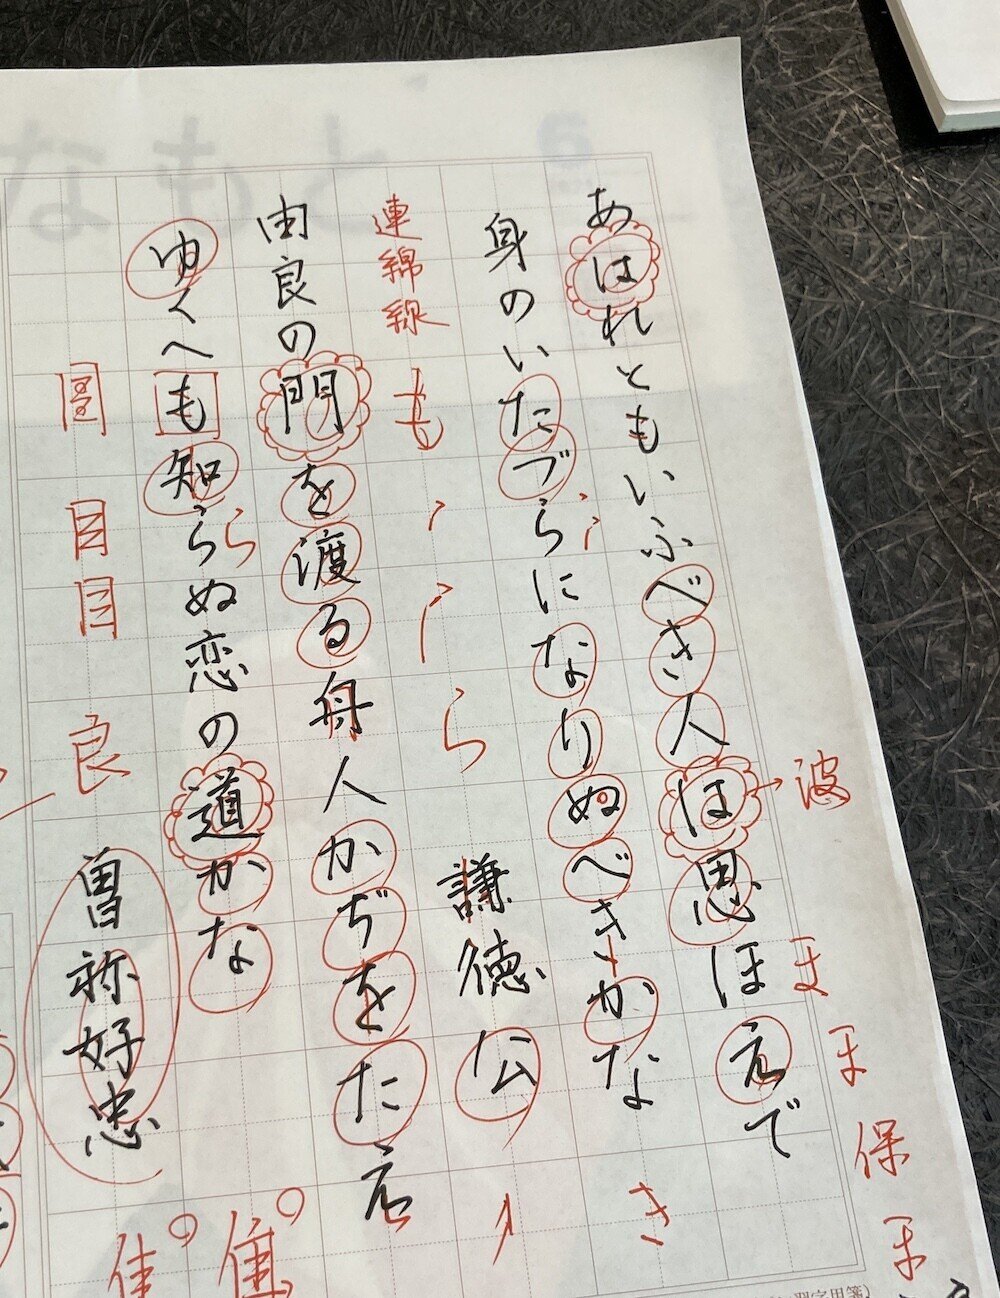 あはれともいふべき人は思ほえで
波
ほ
保
身のいたづらになりぬべきかな
き
連綿線
も
ら
謙徳公
り
由良の門を渡る舟人かぢをたえ
ゆくへも知らぬ恋の道かな
ら
目
目
良
曽祢好忠